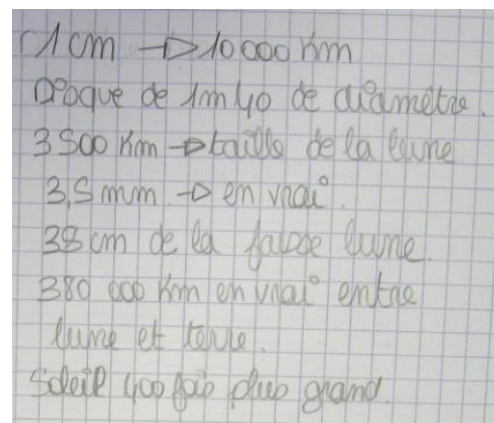 1cm → 10 000 Km
Disque de 1m40 de diamètre.
3 500 Km → taille de la lune
3,5 mm → en vrai.
38 cm de la fausse lune.
380 000 Km en vrai entre
lune et terre.
Soleil 400 fois plus grand.